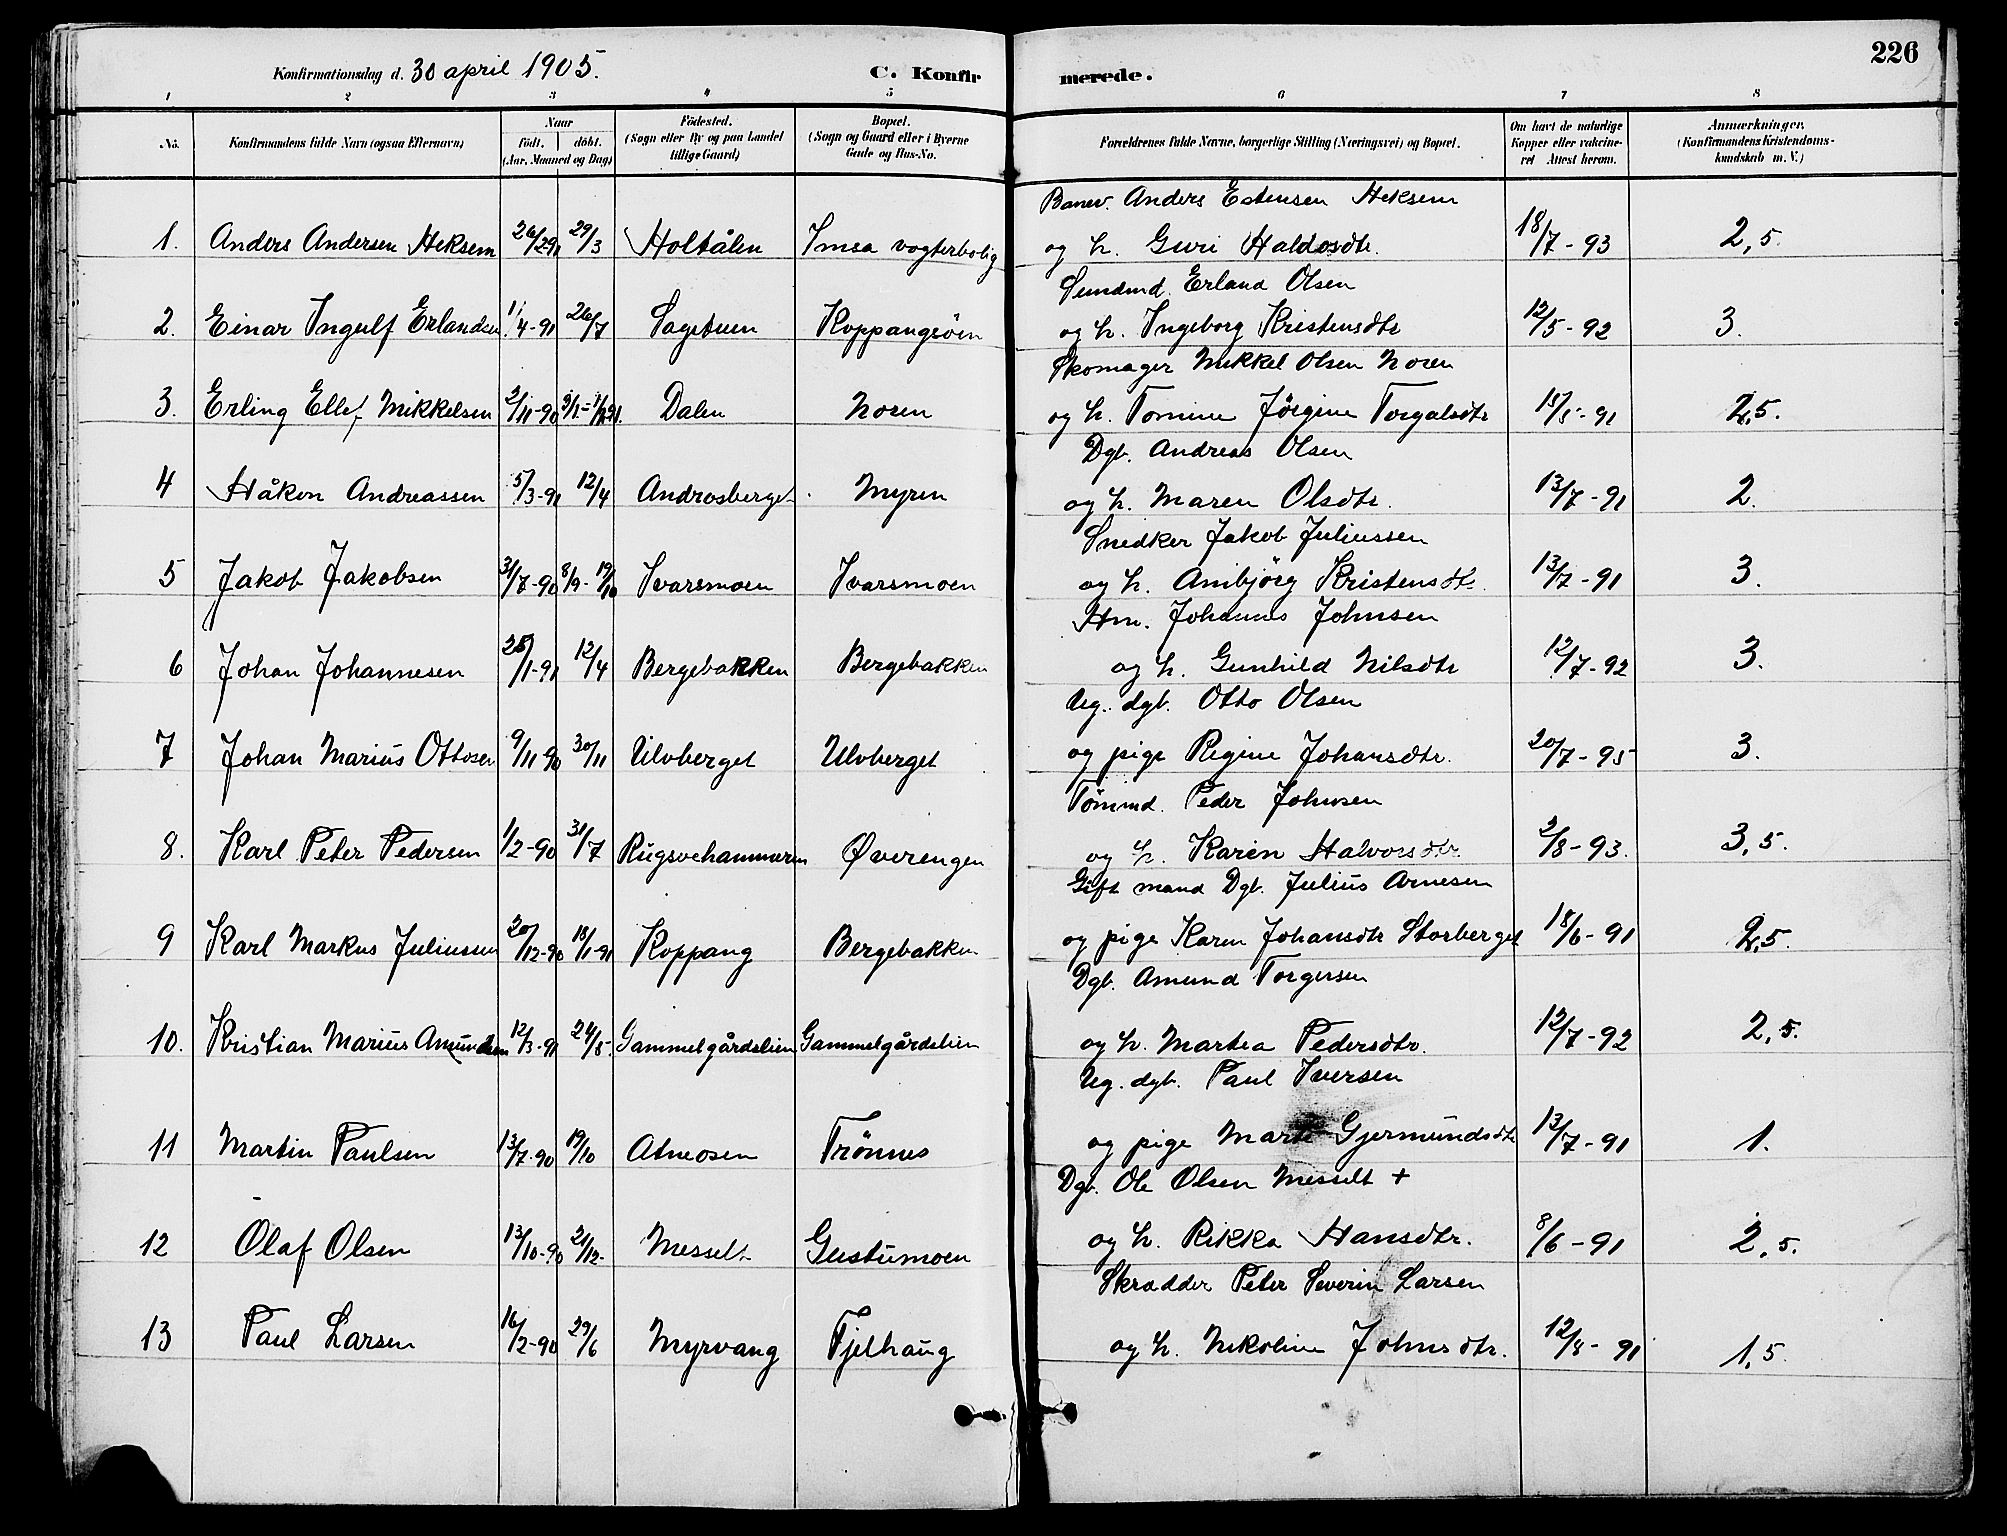 226
Konfirmationsdag d. 30 april 1905. C. Konfir merede.
1 2 3 4 5 6 7 8
No. Konfirmandens fulde Navn (ogsaa Efternavn) Naar født. døbt. (Aar, Maaned og Dag) Födested. (Sogn eller By og paa Landet tillige Gaard) Bopæl. (Sogn og Gaard eller i Byerne Gade og Hus-No. Forældrenes fulde Navne, borgerlige Stilling (Næringsvei) og Bopæl. Om havt de naturlige Kopper eller vaccineret Attest herom. Anmærkninger. (Konfirmandens Kristendomskundskab m. V.)
Banev. Anders Estensen Heksem
1. Anders Andersen Heksem 26/2 91 29/3 Holtålen Imsa vogterbolig og h. Guri Haldosdtr. 18/7 - 93 2,5.
Sundmd. Erland Olsen
2. Einar Ingulf Erlandsen 1/4 - 91 26/7 Sagetuen Koppangsöen og h. Ingeborg Kristensdtr 12/5 - 92 3.
Skomager Mikkel Olsen Noren
3. Erling Ellef Mikkelsen 2/11 - 90 Dalen Noren og h. Tomine Jörgine Torgalsdtr 15/5 - 91 2,5.
Dgb. Andreas Olsen
4 Håkon Andreassen 5/3 - 91 12/4 Androsberget Myren og h. Maren Olsdtr. 13/7 - 91 2.
Snedker Jakob Juliussen
5 Jakob Jakobsen 31/7 - 90 8/9 - 19/10 Ivarsmoen Ivarsmoen og h. Anbjörg Kristensdtr. 13/7 - 91 3.
Hm. Johannes Johnsen
6 Johan Johannesen 25/1 - 91 12/4 Bergebakken Bergebakken og h. Gunhild Nilsdtr 12/7 - 92 3.
Ug. dgb. Otto Olsen
7 Johan Marius Ottosen 9/11 90 30/11 Ulvberget Ulvberget og pige Regine Johansdtr. 20/7 - 95 3.
Tömmd. Peder Johnsen
8. Karl Peter Pedersen 1/2 - 90 31/7 Rugsvehammeren Øverengen og h. Karen Halvorsdtr. 2/8 - 93. 3,5.
Gift mand Dgb. Julius Arnesen
9 Karl Markus Juliussen 20/12 - 90 18/1 - 91 Koppang Bergebakken og pige Karen Johansdtr Storberget 18/6 - 91 2,5.
Dgb. Amund Torgersen
10. Kristian Marius Amundsen 12/3 - 91 24/5. Gammelgårdslien Gammelgårdslien og h. Martea Pedersdtr. 12/7 - 92 2,5.
Ug. dgb. Paul Iversen
11 Martin Paulsen 13/7 - 90 19/10 Atneosen Trönnes og pige Marte Gjermundsdtr 13/7 - 91 1.
Dgb. Ole Olsen Messelt +
12 Olaf Olsen 13/10 - 90 21/12 - Messelt Gustumoen og h. Rikka Hansdtr. 8/6 - 91 2,5.
Skradder Peter Severin Larsen
13 Paul Larsen 16/2 - 90 29/6 Myrvang Fjelhaug og h. Nikoline Johnsdtr. 12/8 - 91 1,5.